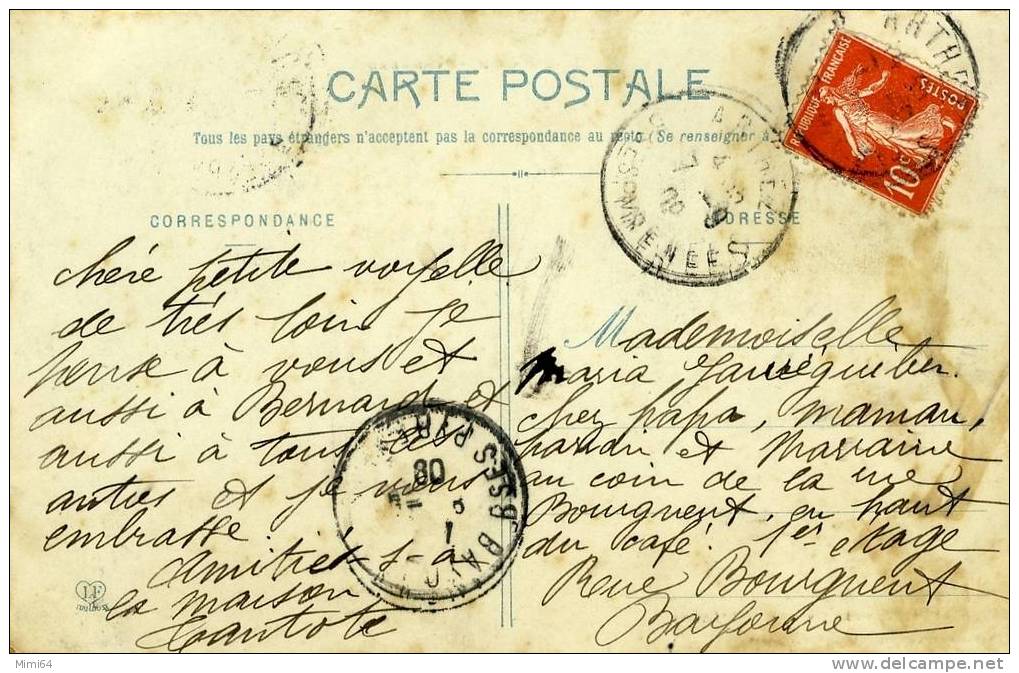 CARTE POSTALE
Tous les pays étrangers n'acceptent pas la correspondance au recto (Se renseigner à
CORRESPONDANCE
chére petite voyelle
de très loin je
pense à vous et
aussi à Bernard et
aussi à tous les
autres et je vous
embrasse.
Amitiés j-a
la maison
ADRESSE
Mademoiselle
Maria
chez papa, maman,
parain et Marraine
au coin de la rue
Bourgneut, en haut
du café. 1er etage
Rue Bourgneut
Bayonne
REPUBLIQUE FRANÇAISE
POSTES
10c
ARTHEZ
BSES PYRENEES
08
BSES PYR
08
LF
TOULOUSE
Mimi64
www.delcampe.net